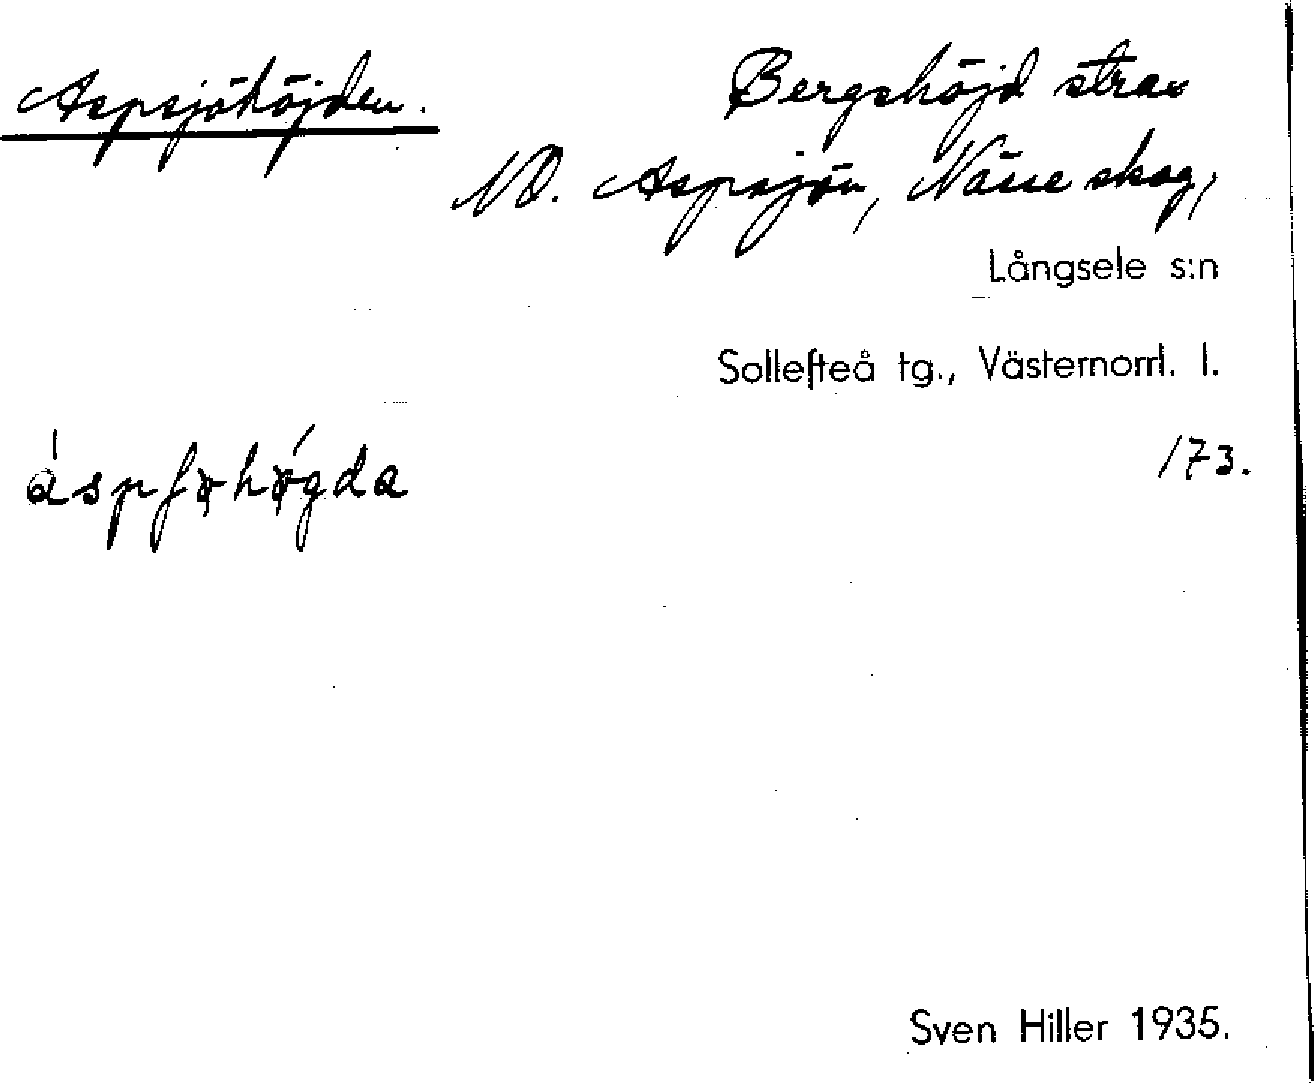 Aspsjöhöjden.
Bergshöjd strax
NO. Aspsjön, Nässe skog,
Långsele s:n
Sollefteå tg., Västernorrl. l.
173.
Sven Hiller 1935.